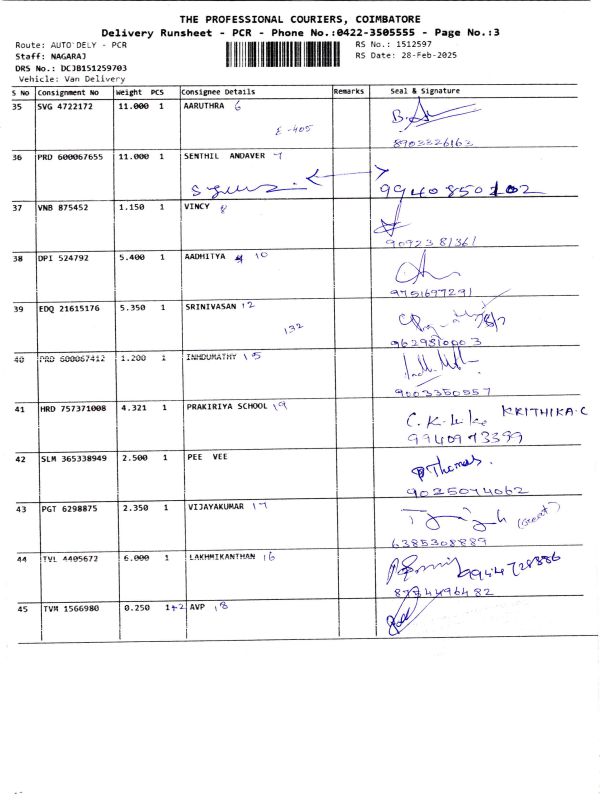 THE PROFESSIONAL COURIERS, COIMBATORE
Delivery Runsheet - PCR - Phone No.:0422-3505555 - Page No.:3
Route: AUTO DELY - PCR RS No.: 1512597
Staff: NAGARAJ RS Date: 28-Feb-2025
DRS No.: DCJB151259703
Vehicle: Van Delivery
S No Consignment No Weight PCS Consignee Details Remarks Seal & Signature
35 SVG 4722172 11.000 1 AARUTHRA 6
E-405
8903326163
36 PRD 600067655 11.000 1 SENTHIL ANDAVER 7
9940850102
37 VNB 875452 1.150 1 VINCY 8
9092381361
38 DPI 524792 5.400 1 AADHITYA 10
9751697291
39 EDQ 21615176 5.350 1 SRINIVASAN 12
132
9629810003
40 PRD 600067412 1.200 1 INHDUMATHY 15
9003350557
41 HRD 757371008 4.321 1 PRAKIRIYA SCHOOL 19 KRITHIKA.C
9940973399
42 SLM 365338949 2.500 1 PEE VEE
Thomas.
9025074062
43 PGT 6298875 2.350 1 VIJAYAKUMAR 17
6385308889
44 TVL 4405672 6.000 1 LAKHMIKANTHAN 16
9944728886
45 TVM 1566980 0.250 1+2 AVP 18